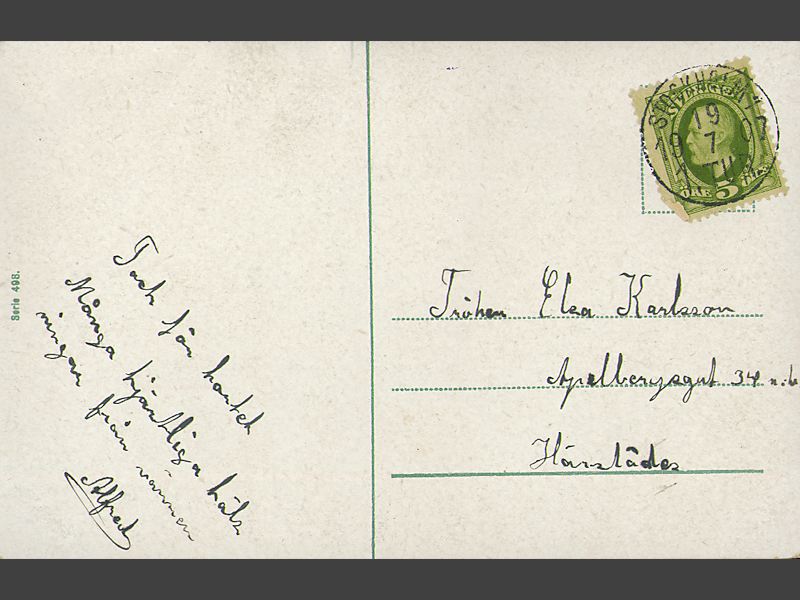 Serie 498.
Tack för kortet
Många hjärtliga häls
ningar från vännen
Alfred
STOCKHOLM
19
19 7
1 TUR
SVERIGE
ÖRE 5
Fröken Elsa Karlsson
Apelbergsgat 34 n.b
Härstädes